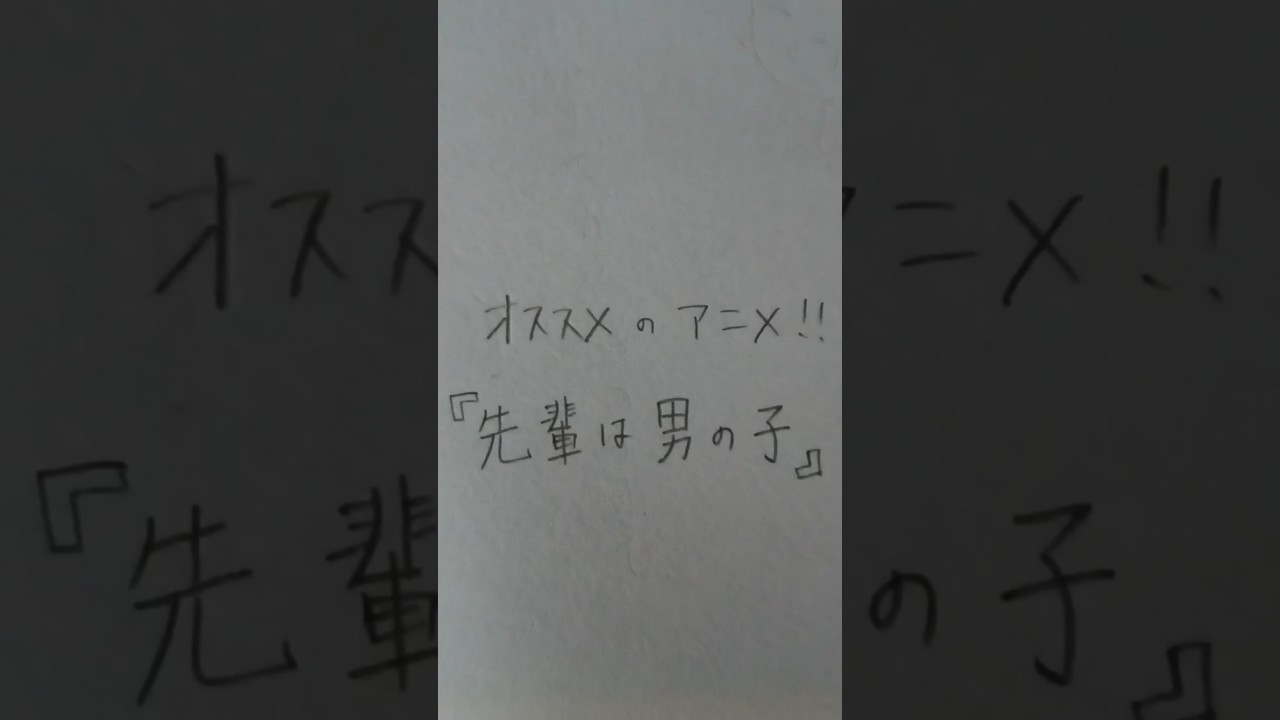 オススメのアニメ!!
『先輩は男の子』